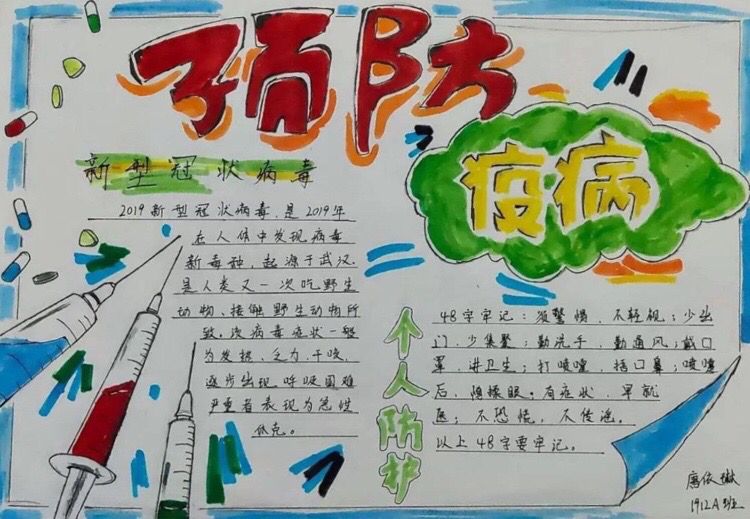 预防
疫病
新型冠状病毒
2019新型冠状病毒，是2019年
在人体中发现病毒
新毒种，起源于武汉.
是人类又一次吃野生
动物、接触野生动物所
致。该病毒症状一般
为发热、乏力、干咳、
逐步出现呼吸困难
严重者表现为急性
休克。
个人防护
48字牢记：须警惕、不轻视；少出
门、少集聚；勤洗手、勤通风；戴口
罩、讲卫生；打喷嚏、捂口鼻；喷嚏
后、揉眼。有症状、早就
医；不恐慌、不传谣。
以上48字要牢记。
1912A班